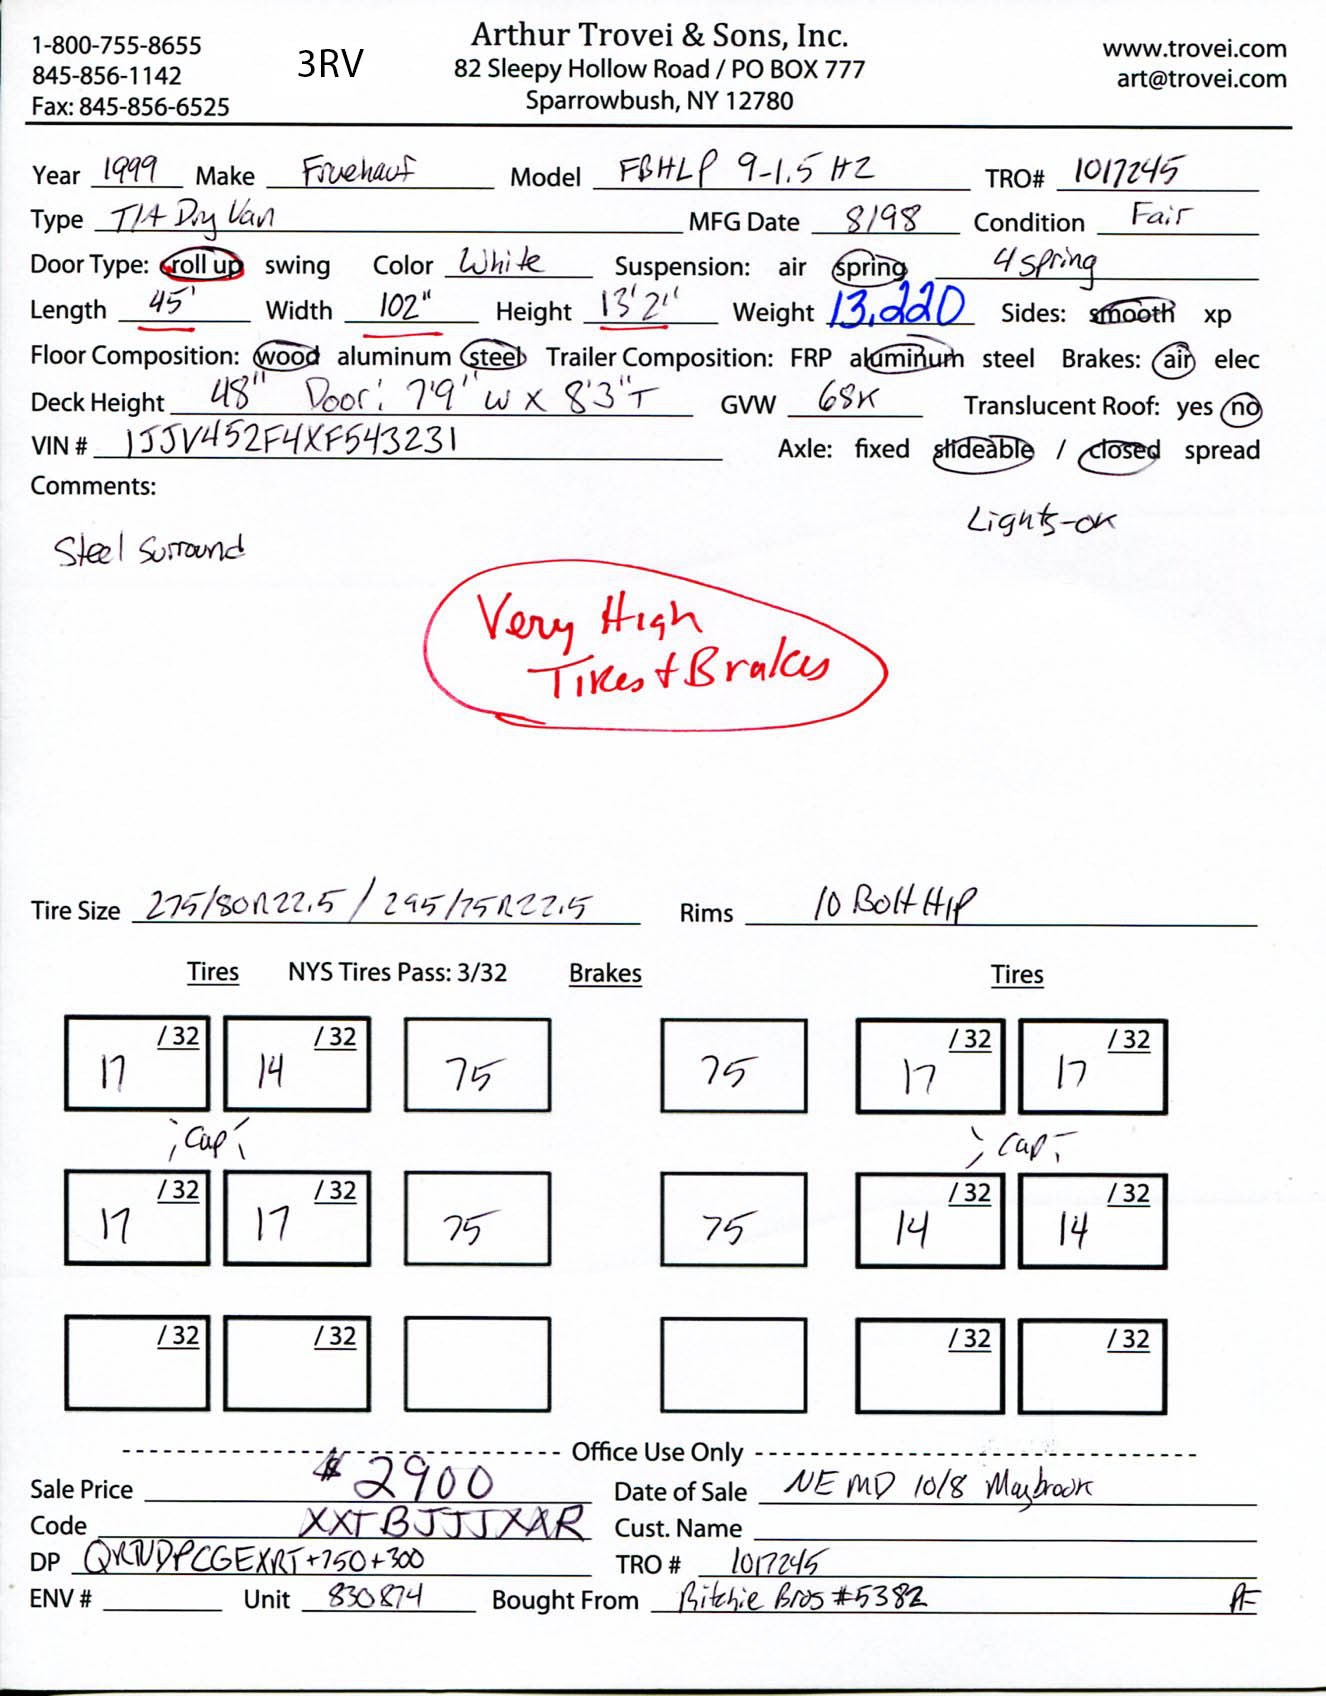 1-800-755-8655
845-856-1142
Fax: 845-856-6525
3RV
Arthur Trovei & Sons, Inc.
82 Sleepy Hollow Road / PO BOX 777
Sparrowbush, NY 12780
www.trovei.com
art@trovei.com
Year 1999 Make Fruehauf Model FBHLP 9-1.5 HZ TRO# 1017245
Type T/A Dry Van MFG Date 8/98 Condition Fair
Door Type: roll up swing Color White Suspension: air spring 4 spring
Length 45' Width 102" Height 13'2" Weight 13,220 Sides: smooth xp
Floor Composition: wood aluminum steel Trailer Composition: FRP aluminum steel Brakes: air elec
Deck Height 48" Door: 7'9" W x 8'3" T GVW 68K Translucent Roof: yes no
VIN # 1JJV452F4XF543231 Axle: fixed slideable / closed spread
Comments:
Lights-ok
Steel Surround
Very High
Tires + Brakes
Tire Size 275/80R22.5 / 295/75R22.5 Rims 10 Bolt H/P
Tires NYS Tires Pass: 3/32 Brakes Tires
17 /32 14 /32 75 75 17 /32 17 /32
Cap Cap
17 /32 17 /32 75 75 14 /32 14 /32
/32 /32 /32 /32
Office Use Only
Sale Price $2900 Date of Sale NE MD 10/8 Maybrook
Code XXTBJJJXXR Cust. Name
DP +750+300 TRO # 1017245
ENV # Unit 830874 Bought From Ritchie Bros #5382 PF